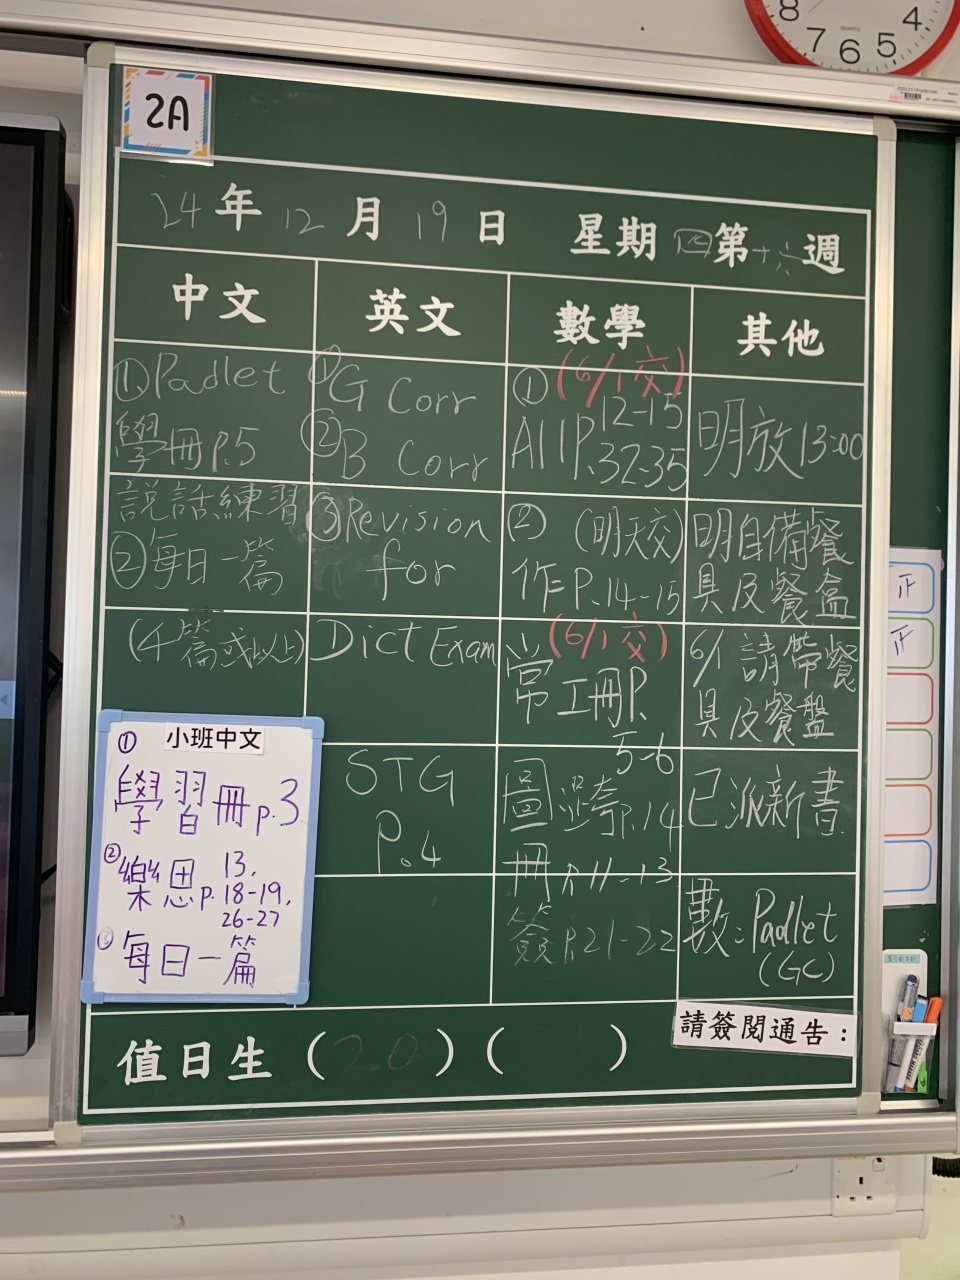 8 7 6 5 4
2A
24年12月19日 星期四第十六週
中文 英文 數學 其他
①Padlet
學冊P.5
說話練習
②每日一篇
(4篇或以上)
①G Corr
②B Corr
③Revision
for
Dict Exam
STG
P.4
① (6/1交)
12-15
AIIP.32-35
② (明天交)
作P.14-15
(6/1交)
常工冊P.
5-6
P.14
冊P.11-13
簽P.21-22
明放13:00
明自備餐
具及餐盒
6/1 請帶餐
具及餐盤
已派新書
數:Padlet
(GC)
① 小班中文
學習冊p.3
②
13,
樂思p.18-19,
26-27
③每日一篇
值日生(20)( )
請簽閱通告:
正
正